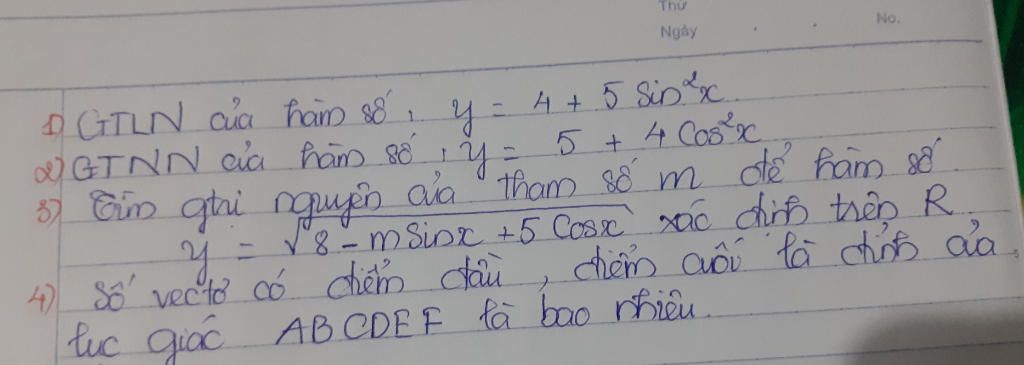 Thứ
Ngày . . No.
1) GTLN của hàm số, y = 4 + 5 Sin²x
2) GTNN của hàm số, y = 5 + 4 Cos²x
3) Tìm gtri nguyên của tham số m để hàm số
y = √8 - mSinx + 5 Cosx xác định trên R
4) Số vectơ có điểm đầu, điểm cuối là đỉnh của
lục giác ABCDEF là bao nhiêu.